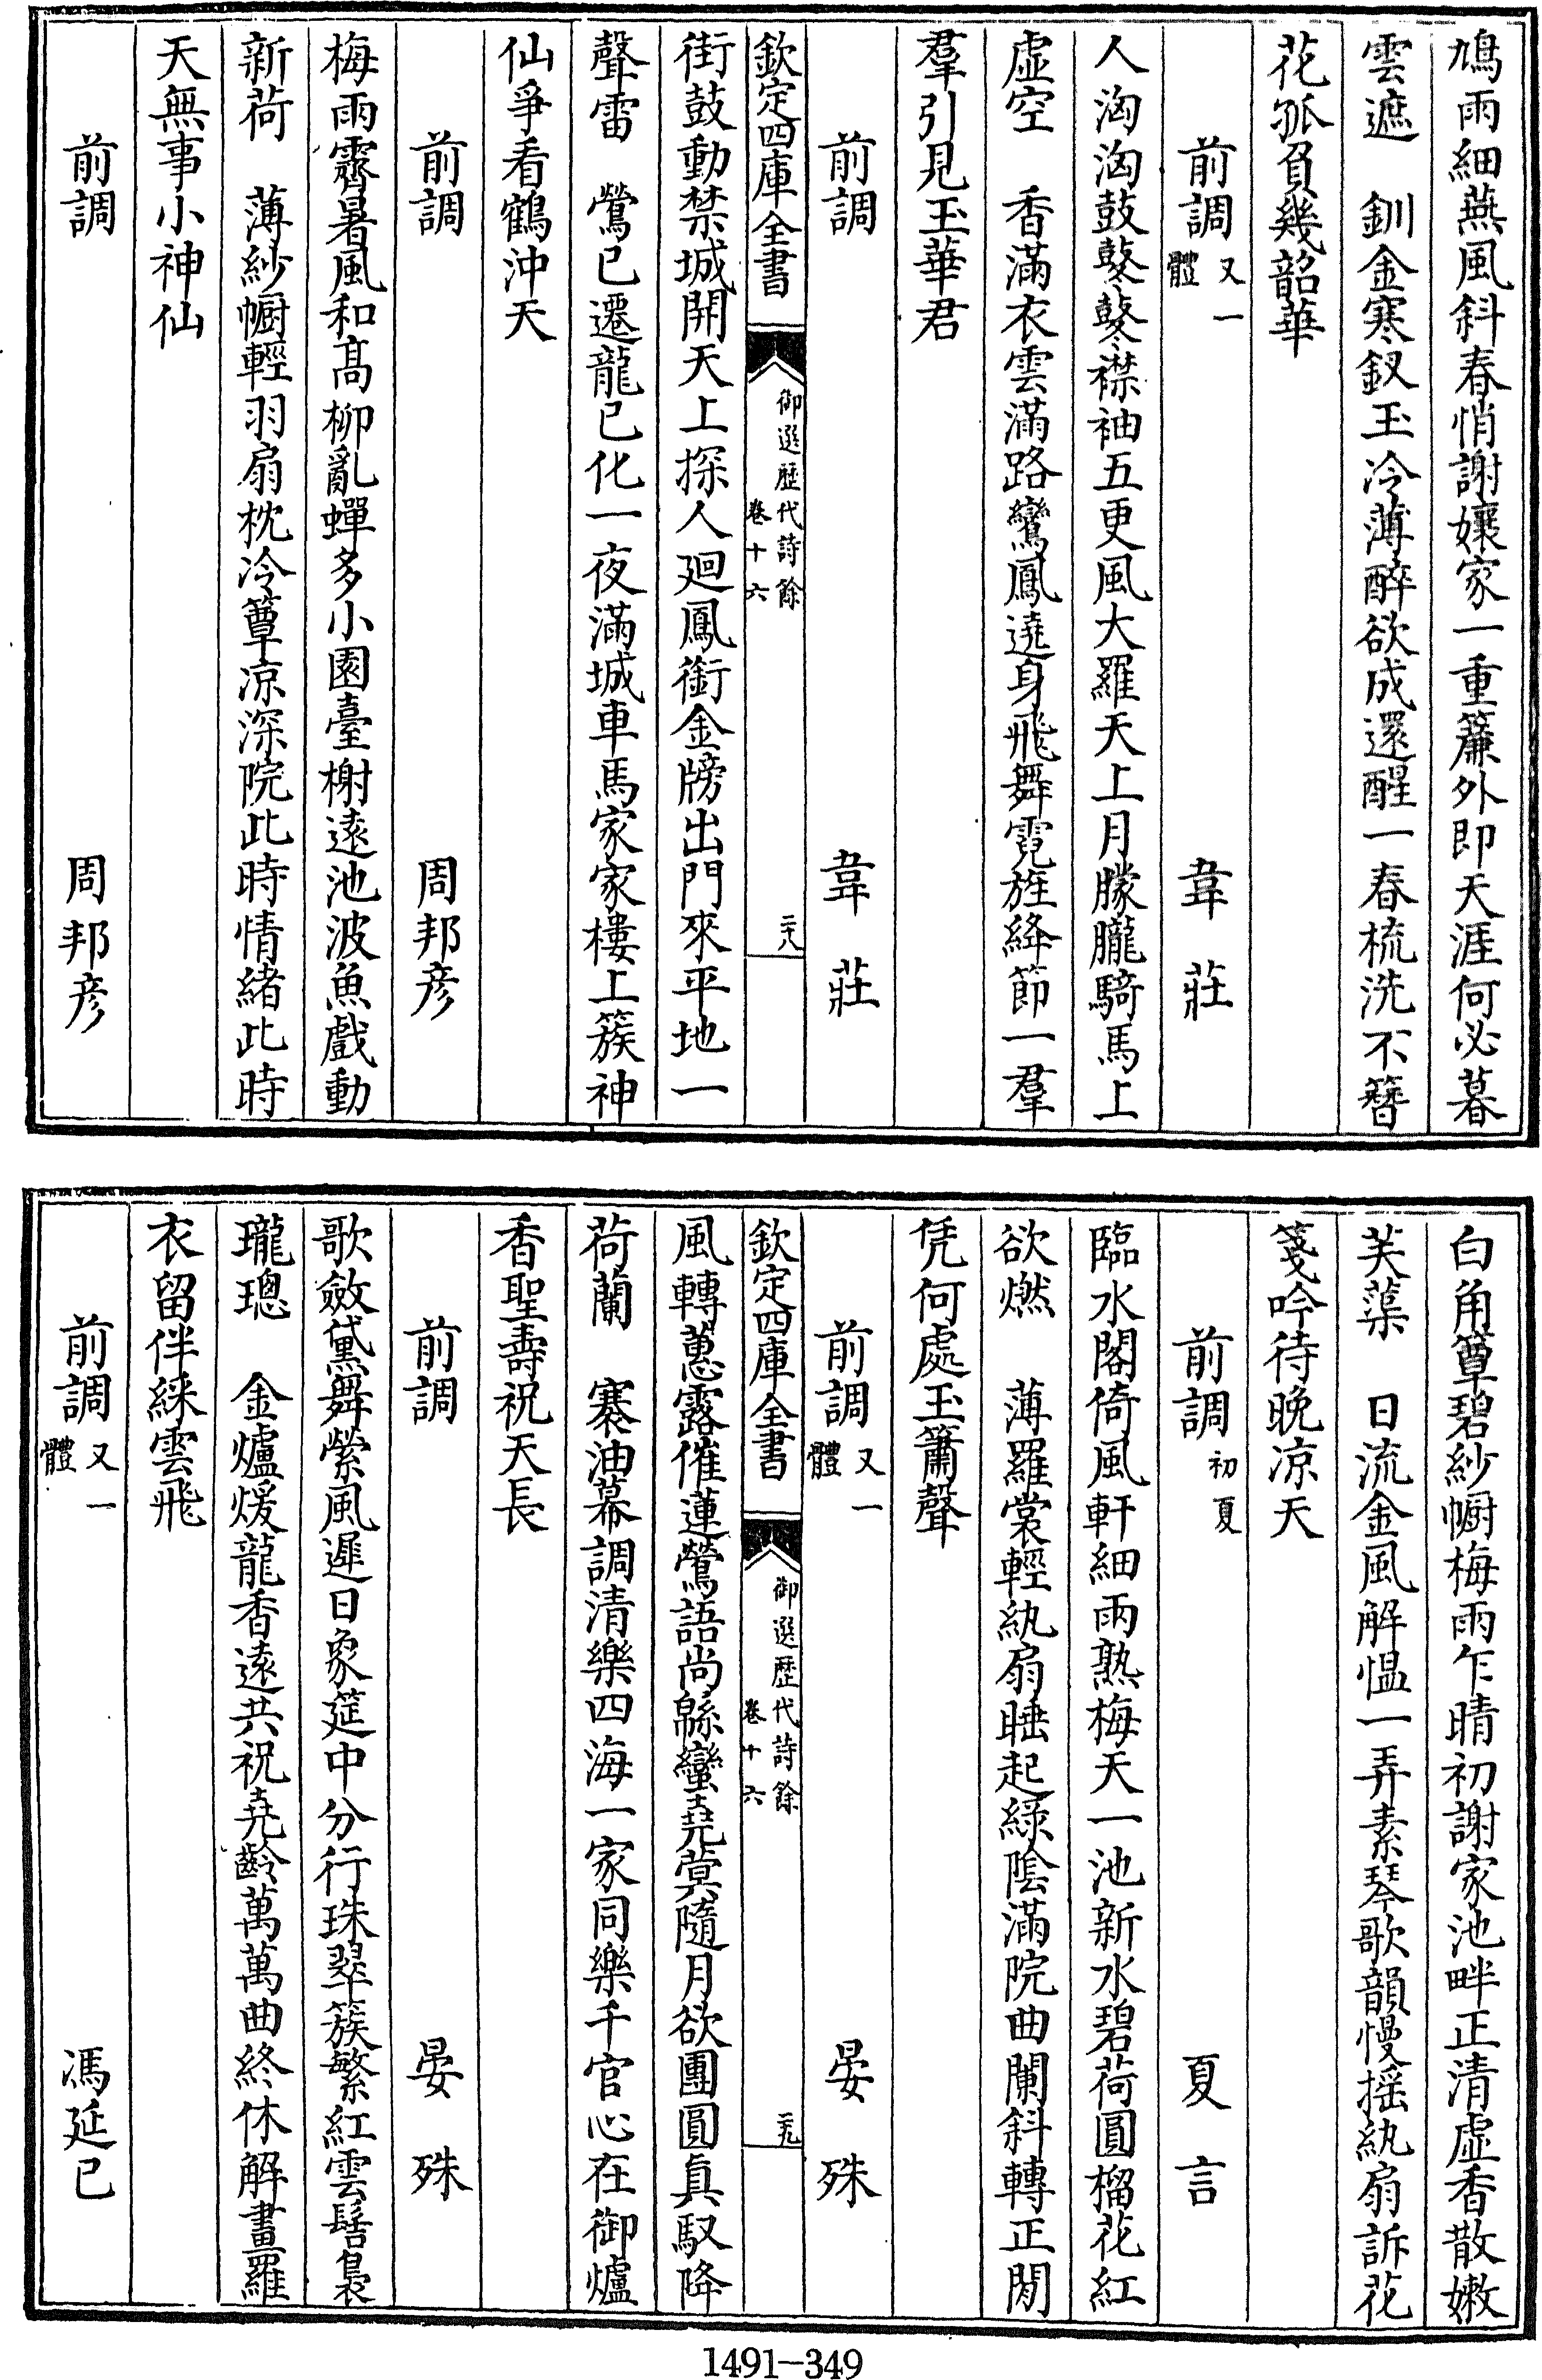 鳩雨細燕風斜春悄謝孃家一重簾外即天涯何必暮
雲遮　釧金寒釵玉冷薄醉欲成還醒一春梳洗不簪
花孤負幾韶華
前調又一體　韋莊
人洶洶鼓鼕鼕襟袖五更風大羅天上月朦朧騎馬上
虛空　香滿衣雲滿路鸞鳳遶身飛舞霓旌絳節一羣
羣引見玉華君
前調　韋莊
欽定四庫全書　御選歷代詩餘卷十六　二十八
街鼓動禁城開天上探人廻鳳銜金牓出門來平地一
聲雷　鶯已遷龍已化一夜滿城車馬家家樓上簇神
仙爭看鶴沖天
前調　周邦彦
梅雨霽暑風和高柳亂蟬多小園臺榭遠池波魚戲動
新荷　薄紗幮輕羽扇枕冷簟凉深院此時情緒此時
天無事小神仙
前調　周邦彦
白角簟碧紗幮梅雨乍晴初謝家池畔正清虛香散嫩
芙蕖　日流金風解愠一弄素琴歌韻慢揺紈扇訴花
箋吟待晚凉天
前調初夏　夏言
臨水閣倚風軒細雨熟梅天一池新水碧荷圓榴花紅
欲燃　薄羅裳輕紈扇睡起綠陰滿院曲闌斜轉正閒
凭何處玉簫聲
前調又一體　晏殊
欽定四庫全書　御選歷代詩餘卷十六　二十九
風轉蕙露催蓮鶯語尚緜蠻堯蓂隨月欲團圓真馭降
荷蘭　褰油幕調清樂四海一家同樂千官心在御爐
香聖壽祝天長
前調　晏殊
歌斂黛舞縈風遲日象筵中分行珠翠簇繁紅雲髻裊
瓏璁　金爐煖龍香遠共祝堯齡萬萬曲終休解畫羅
衣留伴綵雲飛
前調又一體　馮延巳
1491-349